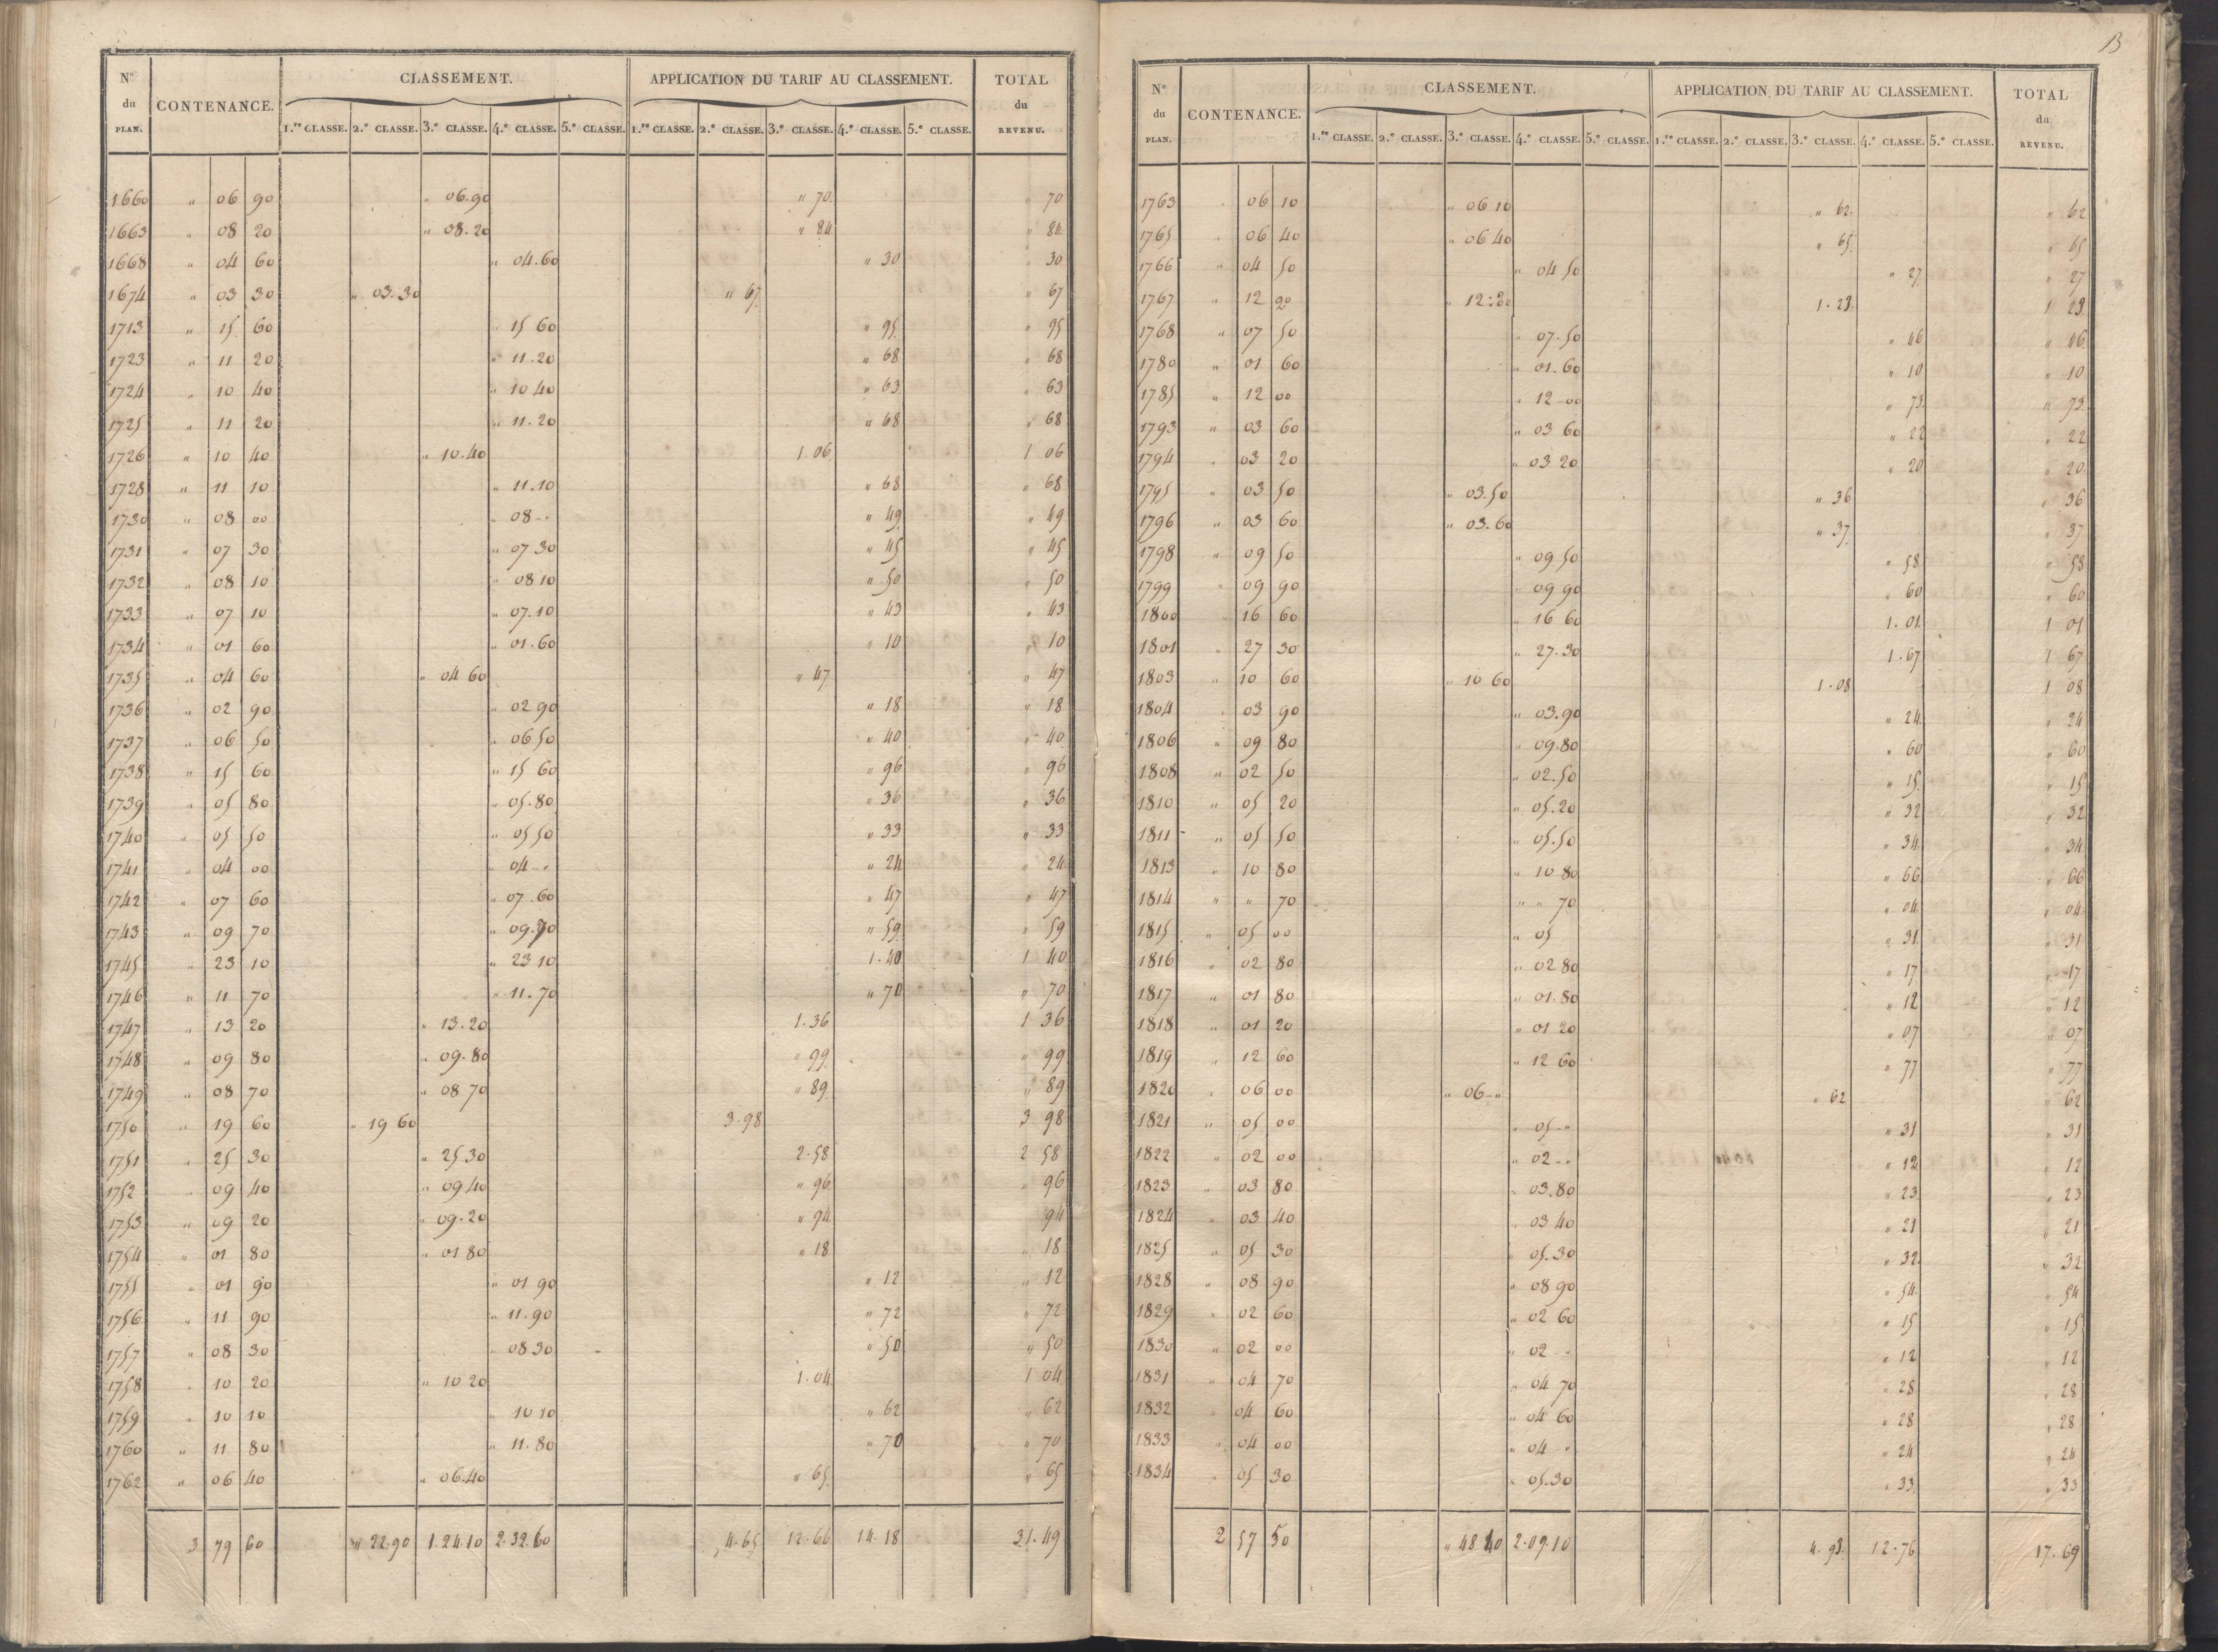 N.º du PLAN. CONTENANCE. CLASSEMENT. APPLICATION DU TARIF AU CLASSEMENT. TOTAL du REVENU.
1.re CLASSE. 2.e CLASSE. 3.e CLASSE. 4.e CLASSE. 5.e CLASSE. 1.re CLASSE. 2.e CLASSE. 3.e CLASSE. 4.e CLASSE. 5.e CLASSE.
1660 " 06 90 " 06.90 " 70 " 70
1663 " 08 20 " 08.20 " 84 " 84
1668 " 04 60 " 04.60 " 30 " 30
1674 " 03 30 " 03.30 " 67 " 67
1713 " 15 60 " 15 60 " 95 " 95
1723 " 11 20 " 11.20 " 68 " 68
1724 " 10 40 " 10 40 " 63 " 63
1725 " 11 20 " 11.20 " 68 " 68
1726 " 10 40 " 10.40 1.06 1 06
1728 " 11 10 " 11.10 " 68 " 68
1730 " 08 00 " 08-" " 49 " 49
1731 " 07 30 " 07 30 " 45 " 45
1732 " 08 10 " 08 10 " 50 " 50
1733 " 07 10 " 07.10 " 43 " 43
1734 " 01 60 " 01.60 " 10 " 10
1735 " 04 60 " 04 60 " 47 " 47
1736 " 02 90 " 02 90 " 18 " 18
1737 " 06 50 " 06 50 " 40 " 40
1738 " 15 60 " 15 60 " 96 " 96
1739 " 05 80 " 05.80 " 36 " 36
1740 " 05 50 " 05 50 " 33 " 33
1741 " 04 00 " 04-" " 24 " 24
1742 " 07 60 " 07.60 " 47 " 47
1743 " 09 70 " 09.70 " 59 " 59
1745 " 23 10 " 23 10 1.40 1 40
1746 " 11 70 " 11.70 " 70 " 70
1747 " 13 20 " 13.20 1.36 1 36
1748 " 09 80 " 09.80 " 99 " 99
1749 " 08 70 " 08 70 " 89 " 89
1750 " 19 60 " 19 60 3.98 3 98
1751 " 25 30 " 25 30 2.58 2 58
1752 " 09 40 " 09 40 " 96 " 96
1753 " 09 20 " 09.20 " 94 94
1754 " 01 80 " 01 80 " 18 " 18
1755 " 01 90 " 01 90 " 12 " 12
1756 " 11 90 " 11.90 " 72 " 72
1757 " 08 30 " 08 30 " 50 " 50
1758 " 10 20 " 10 20 1.04 1 04
1759 " 10 10 " 10 10 " 62 " 62
1760 " 11 80 " 11.80 " 70 " 70
1762 " 06 40 " 06.40 " 65 " 65
3 79 60 " 22.90 1.24.10 2.32.60 4.65 12.66 14.18 31.49
13
N.º du PLAN. CONTENANCE. CLASSEMENT. APPLICATION DU TARIF AU CLASSEMENT. TOTAL du REVENU.
1.re CLASSE. 2.e CLASSE. 3.e CLASSE. 4.e CLASSE. 5.e CLASSE. 1.re CLASSE. 2.e CLASSE. 3.e CLASSE. 4.e CLASSE. 5.e CLASSE.
1763 " 06 10 " 06 10 " 62 " 62
1765 " 06 40 " 06 40 " 65 " 65
1766 " 04 50 " 04 50 " 27 " 27
1767 " 12 20 " 12.20 1.23 1 23
1768 " 07 50 " 07.50 " 46 " 46
1780 " 01 60 " 01.60 " 10 " 10
1785 " 12 00 " 12-00 " 73 " 73
1793 " 03 60 " 03 60 " 22 " 22
1794 " 03 20 " 03 20 " 20 " 20
1795 " 03 50 " 03.50 " 36 " 36
1796 " 03 60 " 03.60 " 37 " 37
1798 " 09 50 " 09 50 " 58 " 58
1799 " 09 90 " 09 90 " 60 " 60
1800 " 16 60 " 16 60 1.01 1 01
1801 " 27 30 " 27.30 1.67 1 67
1803 " 10 60 " 10 60 1.08 1 08
1804 " 03 90 " 03.90 " 24 " 24
1806 " 09 80 " 09.80 " 60 " 60
1808 " 02 50 " 02.50 " 15 " 15
1810 " 05 20 " 05.20 " 32 " 32
1811 " 05 50 " 05.50 " 34 " 34
1813 " 10 80 " 10 80 " 66 " 66
1814 " " 70 " " 70 " 04 " 04
1815 " 05 00 " 05 " 31 " 31
1816 " 02 80 " 02 80 " 17 " 17
1817 " 01 80 " 01.80 " 12 " 12
1818 " 01 20 " 01 20 " 07 " 07
1819 " 12 60 " 12 60 " 77 " 77
1820 " 06 00 " 06-" " 62 " 62
1821 " 05 00 " 05-" " 31 " 31
1822 " 02 00 " 02-" " 12 " 12
1823 " 03 80 " 03.80 " 23 " 23
1824 " 03 40 " 03 40 " 21 " 21
1825 " 05 30 " 05.30 " 32 " 32
1828 " 08 90 " 08 90 " 54 " 54
1829 " 02 60 " 02 60 " 15 " 15
1830 " 02 00 " 02 -" " 12 " 12
1831 " 04 70 " 04 70 " 28 " 28
1832 " 04 60 " 04 60 " 28 " 28
1833 " 04 00 " 04 -" " 24 " 24
1834 " 05 30 " 05.30 " 33 " 33
2 57 50 " 48 40 2.09.10 4.93 12.76 17.69